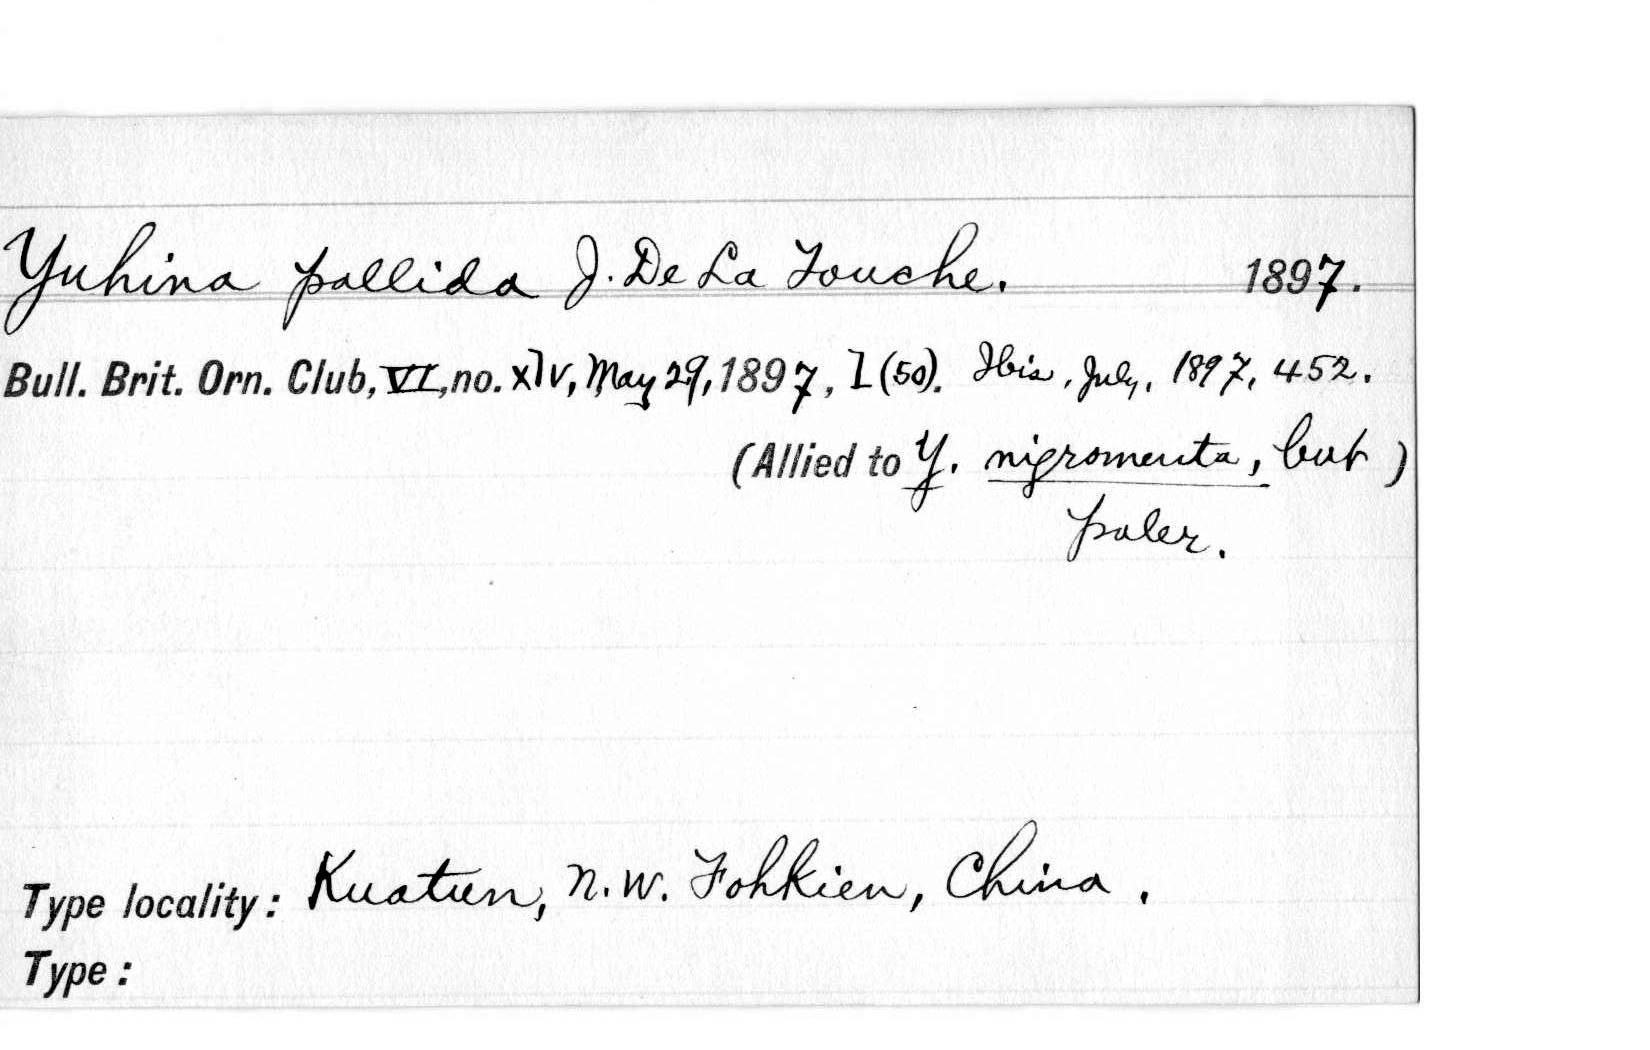 Yuhina pallida J. De La Touche. 1897.
Bull. Brit. Orn. Club, VI, no. xlv, May 29, 1897, l (50). Ibis, July, 1897, 452.
(Allied to Y. nigromenta, but )
paler.
Type locality: Kuatun, N.W. Fohkien, China.
Type: